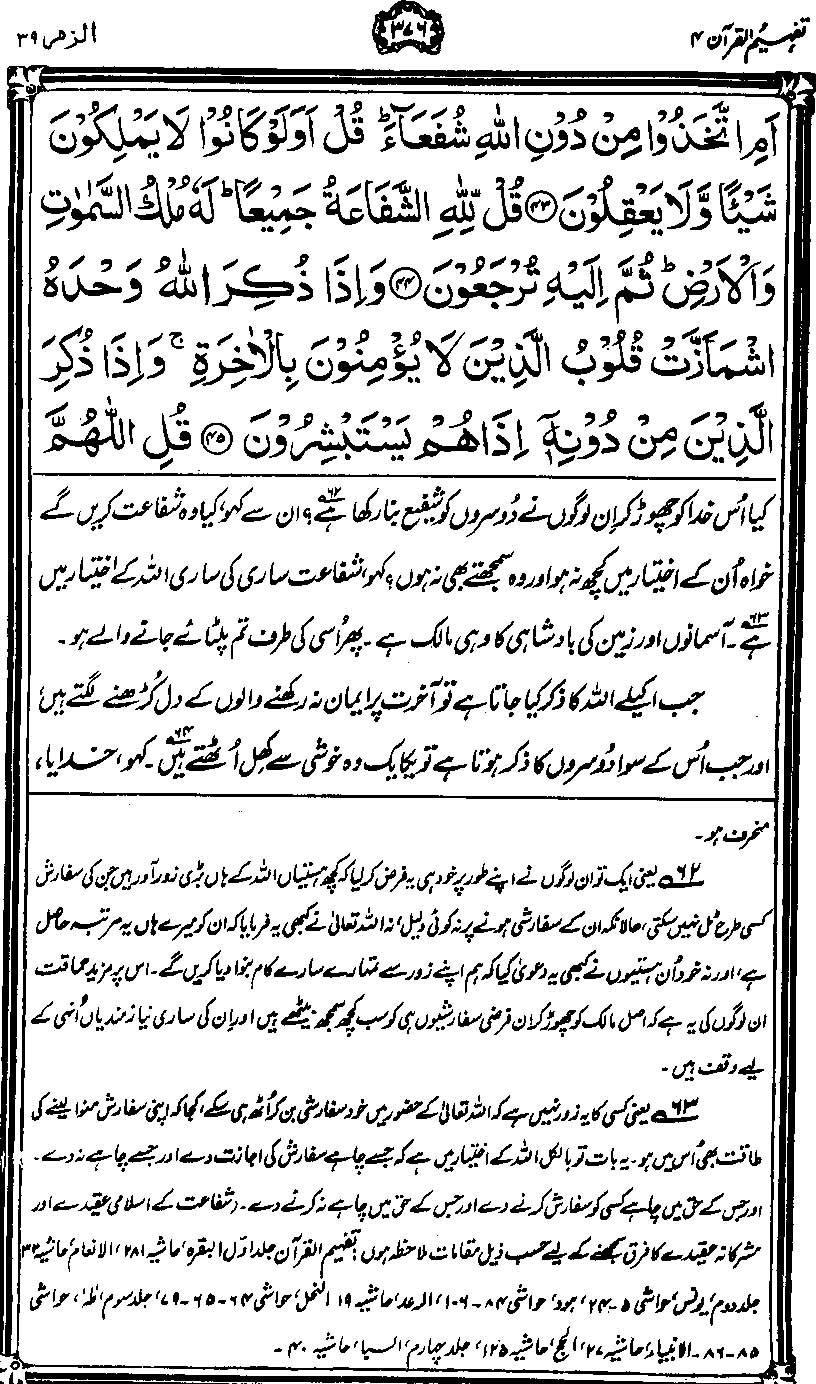 تفہیم القرآن ۴
۳۷۶
الزمر ۳۹
اَمِ اتَّخَذُوْا مِنْ دُوْنِ اللّٰهِ شُفَعَآءَ ؕ قُلْ اَوَلَوْ كَانُوْا لَا يَمْلِكُوْنَ
شَيْـًٔا وَّلَا يَعْقِلُوْنَ ۴۳ قُلْ لِّلّٰهِ الشَّفَاعَةُ جَمِيْعًا ؕ لَهٗ مُلْكُ السَّمٰوٰتِ
وَالْاَرْضِ ؕ ثُمَّ اِلَيْهِ تُرْجَعُوْنَ ۴۴ وَاِذَا ذُكِرَ اللّٰهُ وَحْدَهُ
اشْمَاَزَّتْ قُلُوْبُ الَّذِيْنَ لَا يُؤْمِنُوْنَ بِالْاٰخِرَةِ ۚ وَاِذَا ذُكِرَ
الَّذِيْنَ مِنْ دُوْنِهٖٓ اِذَا هُمْ يَسْتَبْشِرُوْنَ ۴۵ قُلِ اللّٰهُمَّ
کیا اُس خدا کو چھوڑ کر ان لوگوں نے دُوسروں کو شفیع بنا رکھا ہے؟۶۲ ان سے کہو، کیا وہ شفاعت کریں گے
خواہ اُن کے اختیار میں کچھ نہ ہو اور وہ سمجھتے بھی نہ ہوں؟ کہو، شفاعت ساری کی ساری اللہ کے اختیار میں
ہے۶۳۔ آسمانوں اور زمین کی بادشاہی کا وہی مالک ہے۔ پھر اُسی کی طرف تم پلٹائے جانے والے ہو۔
جب اکیلے اللہ کا ذکر کیا جاتا ہے تو آخرت پر ایمان نہ رکھنے والوں کے دل کُڑھنے لگتے ہیں،
اور جب اُس کے سوا دُوسروں کا ذکر ہوتا ہے تو یکایک وہ خوشی سے کِھل اُٹھتے ہیں۶۴۔ کہو، خدایا،
منحرف ہو۔
۶۲ یعنی ایک تو ان لوگوں نے اپنے طور پر خود ہی یہ فرض کر لیا کہ کچھ ہستیاں اللہ کے ہاں بڑی زور آور ہیں جن کی سفارش
کسی طرح ٹل نہیں سکتی، حالانکہ ان کے سفارشی ہونے پر نہ کوئی دلیل، نہ اللہ تعالیٰ نے کبھی یہ فرمایا کہ ان کو میرے ہاں یہ مرتبہ حاصل
ہے، اور نہ خود اُن ہستیوں نے کبھی یہ دعویٰ کیا کہ ہم اپنے زور سے تمہارے سارے کام بنوا دیا کریں گے۔ اس پر مزید حماقت
ان لوگوں کی یہ ہے کہ اصل مالک کو چھوڑ کر ان فرضی سفارشیوں ہی کو سب کچھ سمجھ بیٹھے ہیں اور ان کی ساری نیازمندیاں اُنہی کے
لیے وقف ہیں۔
۶۳ یعنی کسی کا یہ زور نہیں ہے کہ اللہ تعالیٰ کے حضور میں خود سفارشی بن کر اُٹھ ہی سکے، کجا کہ اپنی سفارش منوا لینے کی
طاقت بھی اُس میں ہو۔ یہ بات تو بالکل اللہ کے اختیار میں ہے کہ جسے چاہے سفارش کی اجازت دے اور جسے چاہے نہ دے۔
اور جس کے حق میں چاہے کسی کو سفارش کرنے دے اور جس کے حق میں چاہے نہ کرنے دے۔ (شفاعت کے اسلامی عقیدے اور
مشرکانہ عقیدے کا فرق سمجھنے کے لیے حسب ذیل مقامات ملاحظہ ہوں: تفہیم القرآن جلد اوّل، البقرہ، حاشیہ ۲۸۱، الانعام، حاشیہ ۳۳
جلد دوم، یونس، حواشی ۵-۲۴، ہود، حواشی ۸۴-۱۰۶، الرعد، حاشیہ ۱۹، النحل، حواشی ۶۴-۶۵-۷۹، جلد سوم، طٰہٰ، حواشی
۸۵-۸۶- الانبیاء، حاشیہ ۲۷، الحج، حاشیہ ۱۲۵، جلد چہارم، السبا، حاشیہ ۴۰۔